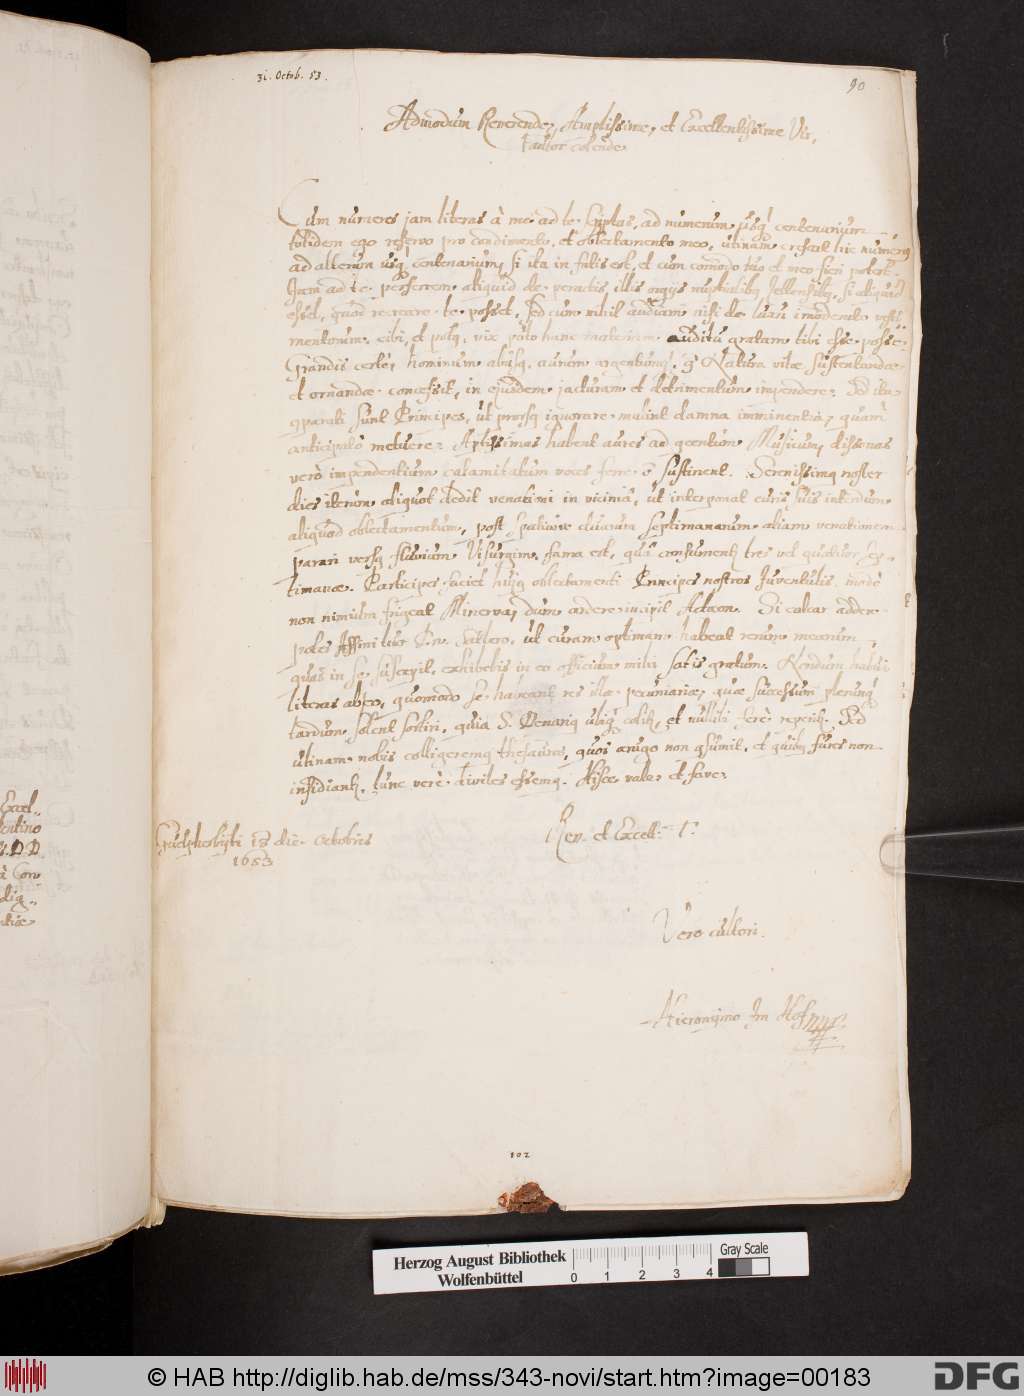 31. Octob. 53.
90
Admodum Reverende, Amplissime, et Excellentissime Vir,
Fautor colende
Cum numeres jam literas à me ad te scriptas, ad numerum usq centenarium
totidem ego reservo pro condimento, et oblectamento meo, utinam crescat hic numerus
ad alterum usq centenarium, si ita in fatis est, et cum comodo tuo et meo fieri potest.
Quam ad te perferrem aliquid de peractis illis orgys nuptialibus, si aliquid
esset, quod recreare te posset, sed cum nihil audiam nisi de luxu imoderato vesti
mentorum, cibi, et potq, vix puto hanc materiem auditu gratam tibi esse posse.
Grandis certè, hominum abusq, aurum argentumq, Natura vitae sustentandae
et ornandae concessit, in ejusdem jacturam et detrimentum impendere. Sed ita
parati sunt Principes, ut prorsq ignorare malint damna imminentia, quam
anticipatò metuere. Aptissimas habent aures ad Musicum, dissonas
verò impendentium calamitatum voces ferre sustinent. Serenissimq noster
dies iterùm aliquot dedit venationi in viciniâ, ut interponat curis suis interdum
aliquod oblectamentum, post spatium duarum septimanarum aliam venationem
parari versq fluvium Visurgim, fama est, qui consument tres vel quatuor sep-
timanae. Participes faciet hujq oblectamenti Principes nostros Juventutis, modò
non nimium frigeat Minerva, dum ardere incipit Actaeon. Si calcar addere
potes Affini tuo Dn. ut curam optimam habeat rerum mearum,
quas in se suscepit, exhibebis in eo officium mihi satis gratum. Nondum habui
literas ab eo, quomodo se habeant res illae pecuniariae, quae successum plerumq
tardum solent sortiri, quia S. Denariq ubiq colit, et nullibi ferè reperit. Sed
utinam nobis colligeremq thesauros, quos aerugo non sumit, et quibq fures non
insidiant, tunc verè divites essemq. Hisce vale et fave.
Guelpherbyti die Octobris
1653
Rev. et Excell. T.
Vero cultori.
Hieronymo Im Hof
102
Herzog August Bibliothek
Wolfenbüttel
0 1 2 3 4
Gray Scale
© HAB http://diglib.hab.de/mss/343-novi/start.htm?image=00183
DFG